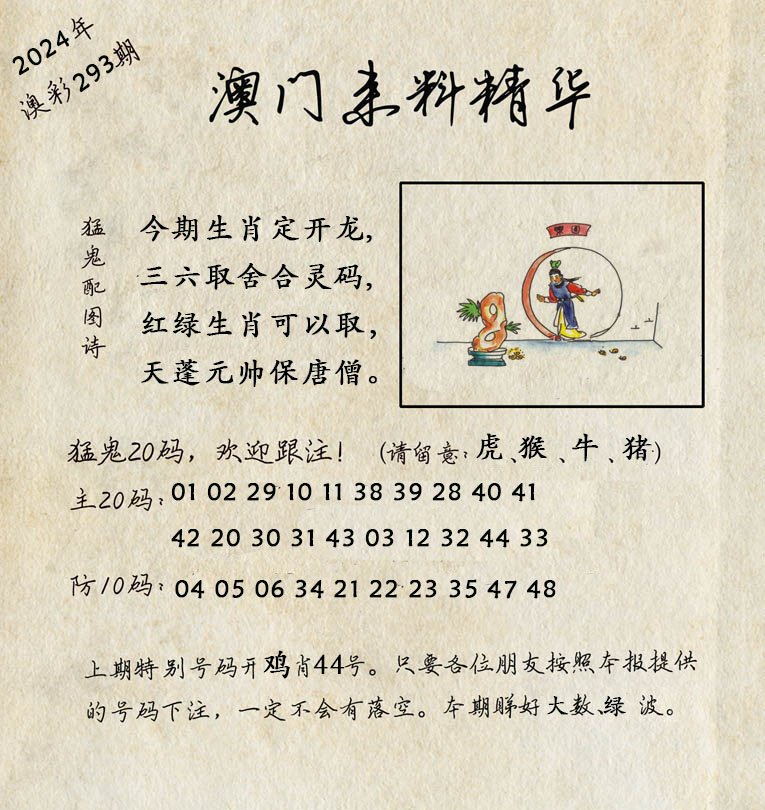 2024年
澳彩293期
澳门来料精华
猛鬼配图诗
今期生肖定开龙,
三六取舍合灵码,
红绿生肖可以取,
天蓬元帅保唐僧。
猛鬼20码，欢迎跟注！（请留意：虎、猴、牛、猪）
主20码：01 02 29 10 11 38 39 28 40 41
42 20 30 31 43 03 12 32 44 33
防10码：04 05 06 34 21 22 23 35 47 48
上期特别号码开鸡肖44号。只要各位朋友按照本报提供
的号码下注，一定不会有落空。本期睇好大数、绿 波。